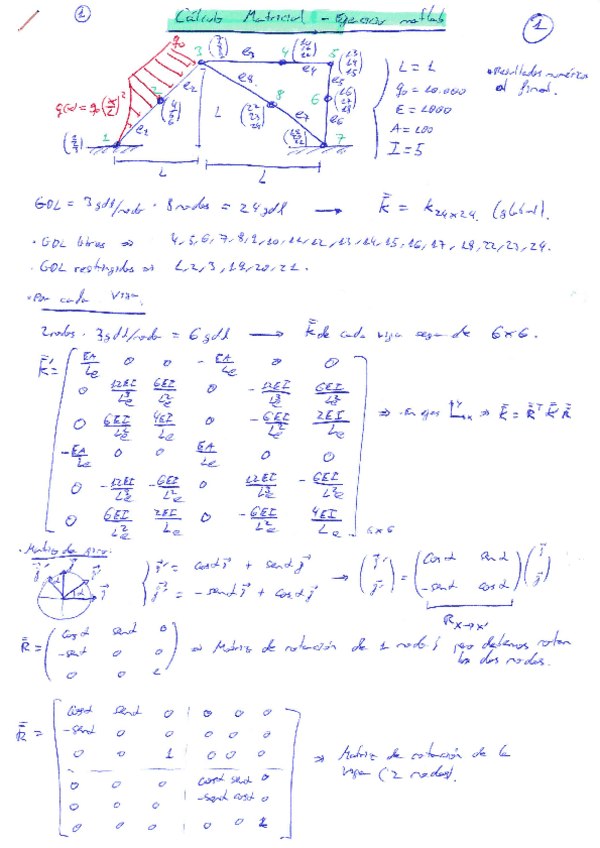 Cálculo Matricial - Ejercicio matlab
1
1
q₀
q(x) = q₀(x/L)²
3 (7 8 9) e₃ 4 (10 11 12) e₄ 5 (13 14 15)
e₂ e₈ e₅
2 (4 5 6) 8 (22 23 24) 6 (16 17 18)
e₁ e₇ e₆
(1 2 3) 1 L (19 20 21) 7
L L
L = 1
q₀ = 10.000
E = 1000
A = 100
I = 5
• Resultados numéricos al final.
GDL = 3 gdl/nodo · 8 nodos = 24 gdl → K̿ = K₂₄ₓ₂₄ (global).
· GDL libres ⇒ 4, 5, 6, 7, 8, 9, 10, 11, 12, 13, 14, 15, 16, 17, 18, 22, 23, 24.
· GDL restringidos ⇒ 1, 2, 3, 19, 20, 21.
· Por cada viga.
2 nodos · 3 gdl/nodo = 6 gdl → K̿ de cada viga será de 6x6.
K̿' =
EA/Le 0 0 -EA/Le 0 0
0 12EI/Le³ 6EI/Le² 0 -12EI/Le³ 6EI/Le²
0 6EI/Le² 4EI/Le 0 -6EI/Le² 2EI/Le
-EA/Le 0 0 EA/Le 0 0
0 -12EI/Le³ -6EI/Le² 0 12EI/Le³ -6EI/Le²
0 6EI/Le² 2EI/Le 0 -6EI/Le² 4EI/Le
6x6
⇒ En ejes Y X ⇒ K̿ = R̿ᵀ K̿' R̿
· Matriz de giro:
j⃗' j⃗ i⃗' α i⃗
i⃗' = cosα i⃗ + senα j⃗
j⃗' = -senα i⃗ + cosα j⃗
→ (i⃗' j⃗') = (cosα senα -senα cosα) (i⃗ j⃗)
R x→x'
R̿ =
cosα senα 0
-senα 0 0
0 0 1
⇒ Matriz de rotación de 1 nodo! pero debemos rotar los dos nodos.
R̿ =
cosα senα 0 0 0 0
-senα 0 0 0 0 0
0 0 1 0 0 0
0 0 0 cosα senα 0
0 0 0 -senα cosα 0
0 0 0 0 0 1
⇒ Matriz de rotación de la viga (2 nodos).